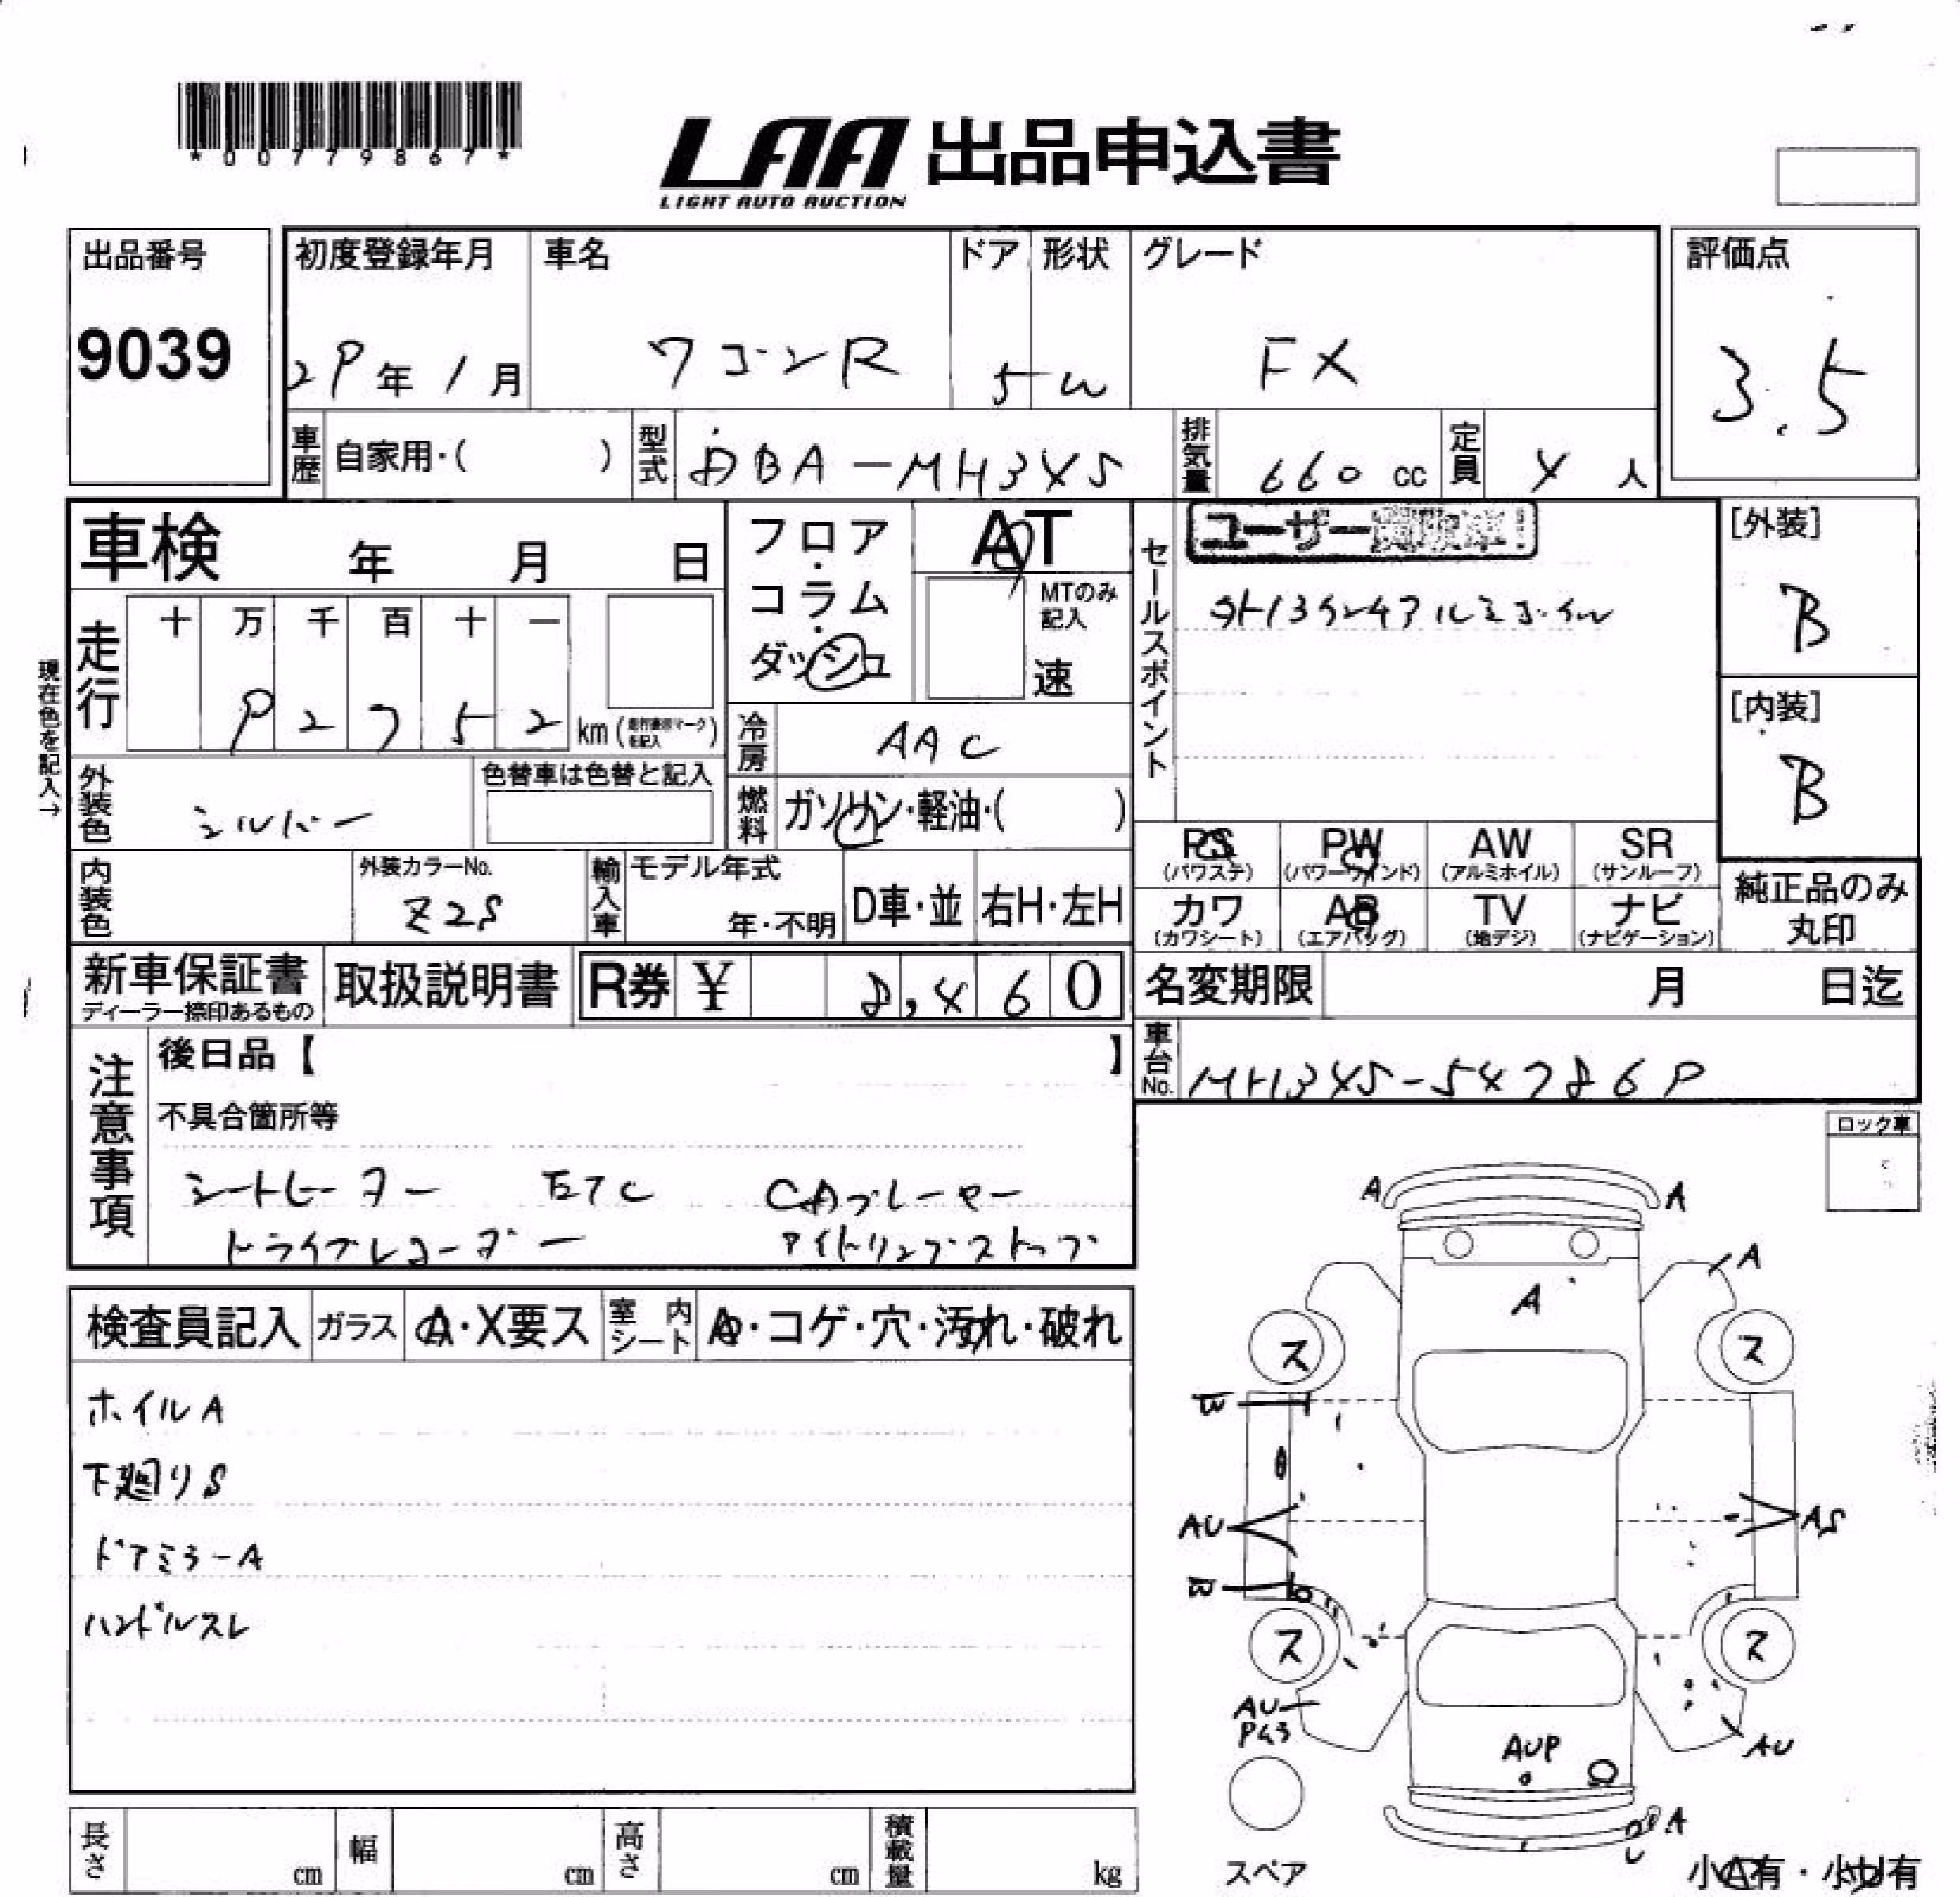 *00779867*
LAA 出品申込書
LIGHT AUTO AUCTION
出品番号
9039
初度登録年月
29年1月
車名
ワゴンR
ドア
5
形状
W
グレード
FX
評価点
3.5
車歴
自家用・( )
型式
DBA-MH34S
排気量
660 cc
定員
4 人
車検 年 月 日
フロア・コラム・ダッシュ
AT
MTのみ記入
速
セールスポイント
ユーザー
[外装]
B
[内装]
B
現在色を記入→
走行
十 万 千 百 十 一
9 2 7 5 2 km
冷房
AAC
外装色
シルバー
色替車は色替と記入
燃料
ガソリン・軽油・( )
PS (パワステ)
PW (パワーウインド)
AW (アルミホイル)
SR (サンルーフ)
カワ (カワシート)
AB (エアバッグ)
TV (地デジ)
ナビ (ナビゲーション)
純正品のみ丸印
内装色
外装カラーNo.
Z2S
輸入車
モデル年式
年・不明
D車・並
右H・左H
新車保証書
ディーラー捺印あるもの
取扱説明書
R券 ¥ 8,460
名変期限 月 日迄
車台No.
MH34S-547869
注意事項
後日品【 】
不具合箇所等
シートヒーター ETC CDプレーヤー
ドライブレコーダー アイドリングストップ
ロック車
検査員記入
ガラス
A・X要ス
室内シート
A・コゲ・穴・汚れ・破れ
ホイルA
下廻りS
ドアミラーA
ハンドルスレ
A
A
A
A
ス
ス
W
AU
AS
ス
ス
AU
AUP
AU
A
U
スペア
小A有・小U有
長さ cm
幅 cm
高さ cm
積載量 kg